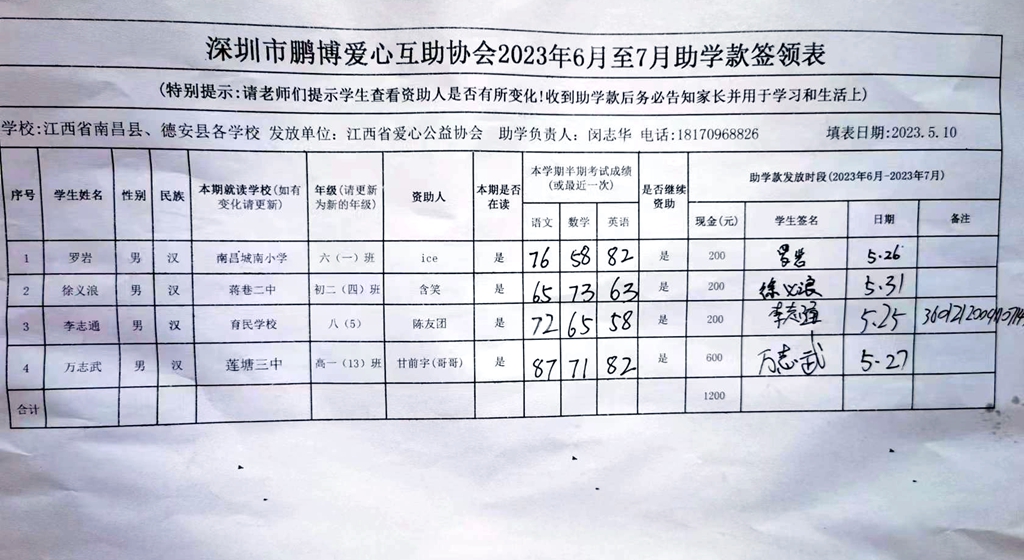 深圳市鹏博爱心互助协会2023年6月至7月助学款签领表
(特别提示:请老师们提示学生查看资助人是否有所变化!收到助学款后务必告知家长并用于学习和生活上)
学校:江西省南昌县、德安县各学校 发放单位: 江西省爱心公益协会 助学负责人: 闵志华 电话:18170968826 填表日期:2023.5.10
序号 学生姓名 性别 民族 本期就读学校(如有变化请更新) 年级(请更新为新的年级) 资助人 本期是否在读 本学期半期考试成绩(或最近一次) 是否继续资助 助学款发放时段(2023年6月-2023年7月)
语文 数学 英语 现金(元) 学生签名 日期 备注
1 罗岩 男 汉 南昌城南小学 六(一)班 ice 是 76 58 82 是 200 罗岩 5.26
2 徐义浪 男 汉 蒋巷二中 初二(四)班 含笑 是 65 73 63 是 200 徐义浪 5.31
3 李志通 男 汉 育民学校 八(5) 陈友团 是 72 65 58 是 200 李志通 5.25
4 万志武 男 汉 莲塘三中 高一(13)班 甘前字(哥哥) 是 87 71 82 是 600 万志武 5.27
合计 1200